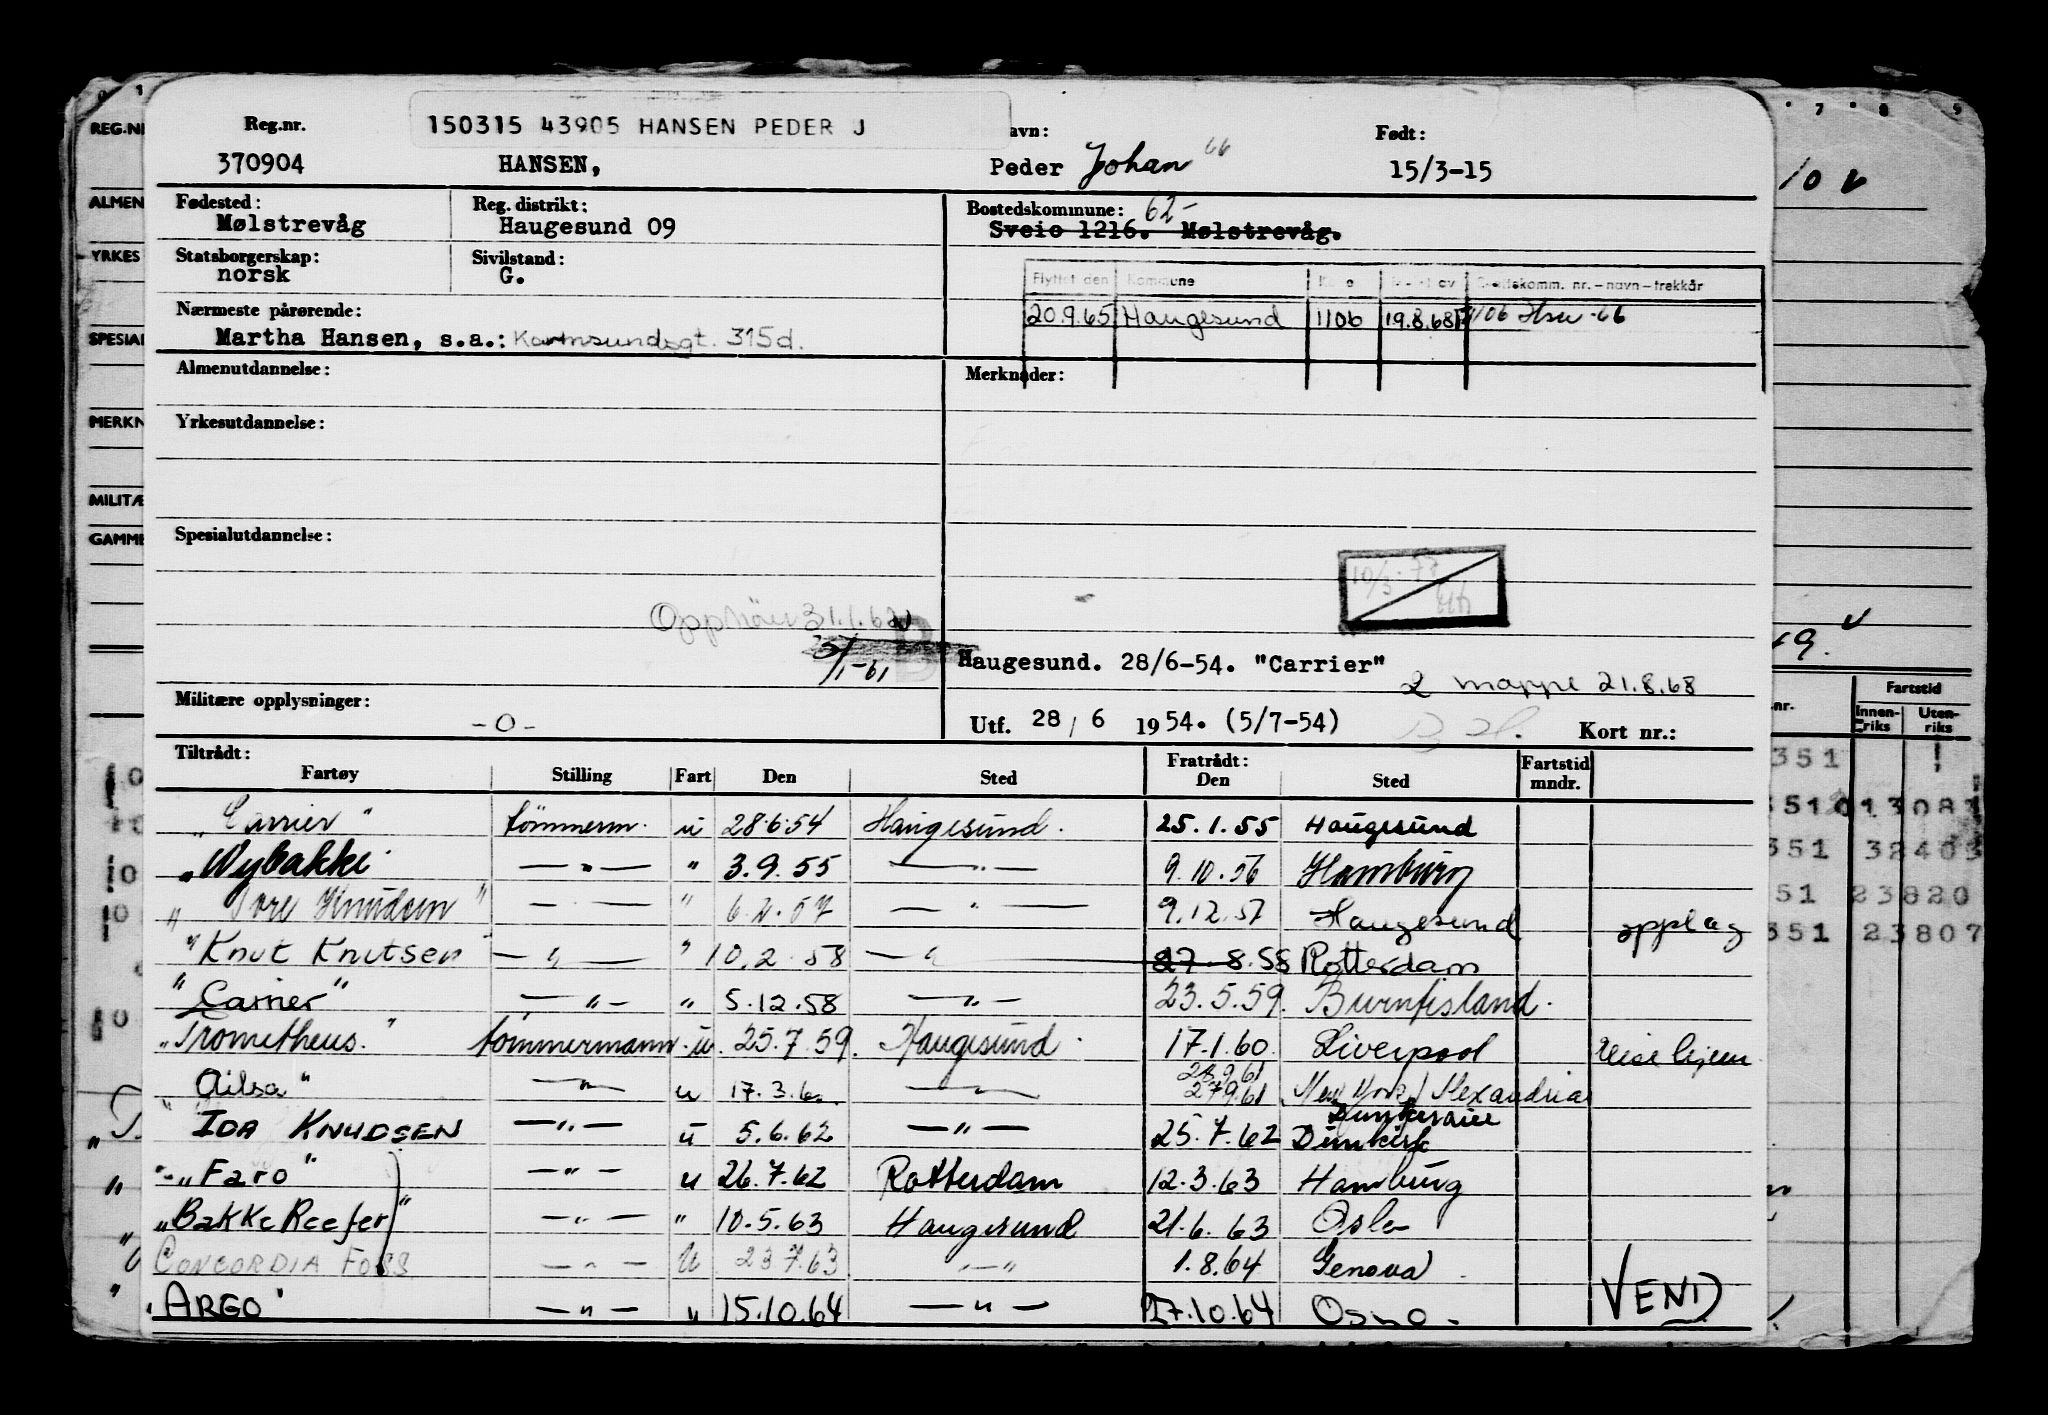 Reg.nr. 150315 43905 HANSEN PEDER J avn: Født:
370904 HANSEN, Peder Johan 66 15/3-15
Fødested: Reg. distrikt: Bostedskommune: 62-
Mølstrevåg Haugesund 09 Sveio 1216. Mølstrevåg.
Statsborgerskap: Sivilstand:
norsk G.
Flyttet den Kommune nr.-navn-trekkår
Nærmeste pårørende: 20.9.65 Haugesund 1106 19.8.68 1106 -66
Martha Hansen, s.a.: Karmsundsgt. 315d.
Almenutdannelse: Merknader:
Yrkesutdannelse:
Spesialutdannelse:
10/3-77
Opphør 31.1.62
3/1-61 B
Haugesund. 28/6-54. "Carrier"
2 mappe 21.8.68
Militære opplysninger: -0-
Utf. 28/6 1954. (5/7-54) Kort nr.:
Tiltrådt: Fratrådt: Fartstid
Fartøy Stilling Fart Den Sted Den Sted mndr.
"Carrier" tømmerm. u 28.6.54 Haugesund. 25.1.55 Haugesund
"Wybakke — " — " 3.9.55 — " — 9.10.56 Hamburg
" Tore Knudsen " — " — " 6.2.57 — " — 9.12.57 Haugesund opplag
"Knut Knutsen — " — " 10.2.58 — " — 27.8.58 Rotterdam
"Carrier" — " — " 5.12.58 — " — 23.5.59. Burntisland.
"Prometheus." tømmermann u. 25.7.59. Haugesund. 17.1.60. Liverpool
28.9.61
Ailsa" — " — u 17.3.6 — " — 27.9.61 New York / Alexandria
" IDA KNUDSEN — " — u 5.6.62 — " — 25.7.62 Dunkirk
"Faro" — " — u 26.7.62 Rotterdam 12.3.63 Hamburg
"Bakke Reefer" — " — " 10.5.63 Haugesund 21.6.63 Oslo
CONCORDIA FOSS — " — u 23.7.63 — " 1.8.64 Genova
"ARGO" — " — " 15.10.64 — " — 27.10.64 VEND
REG.NR
ALMEN
YRKES
SPESIAL
MERKN
MILITÆ
GAMME
7 8 9
10 v
19. v
nr. Fartstid
Innen-riks Uten-riks
351
5510 13081
351 32403
51 23820
351 23807